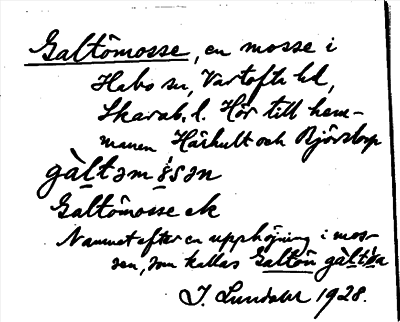 Galtömosse, en mosse i
Habo sn, Vartofta hd,
Skarab. l. Hör till hem-
manen Härkult och Bjårstorp
gàltəmɔ̀sən
Galtömosse ek
Namnet efter en upphöjning i mos-
sen, som kallas Galtön gàltöa
I. Lundahl 1928.